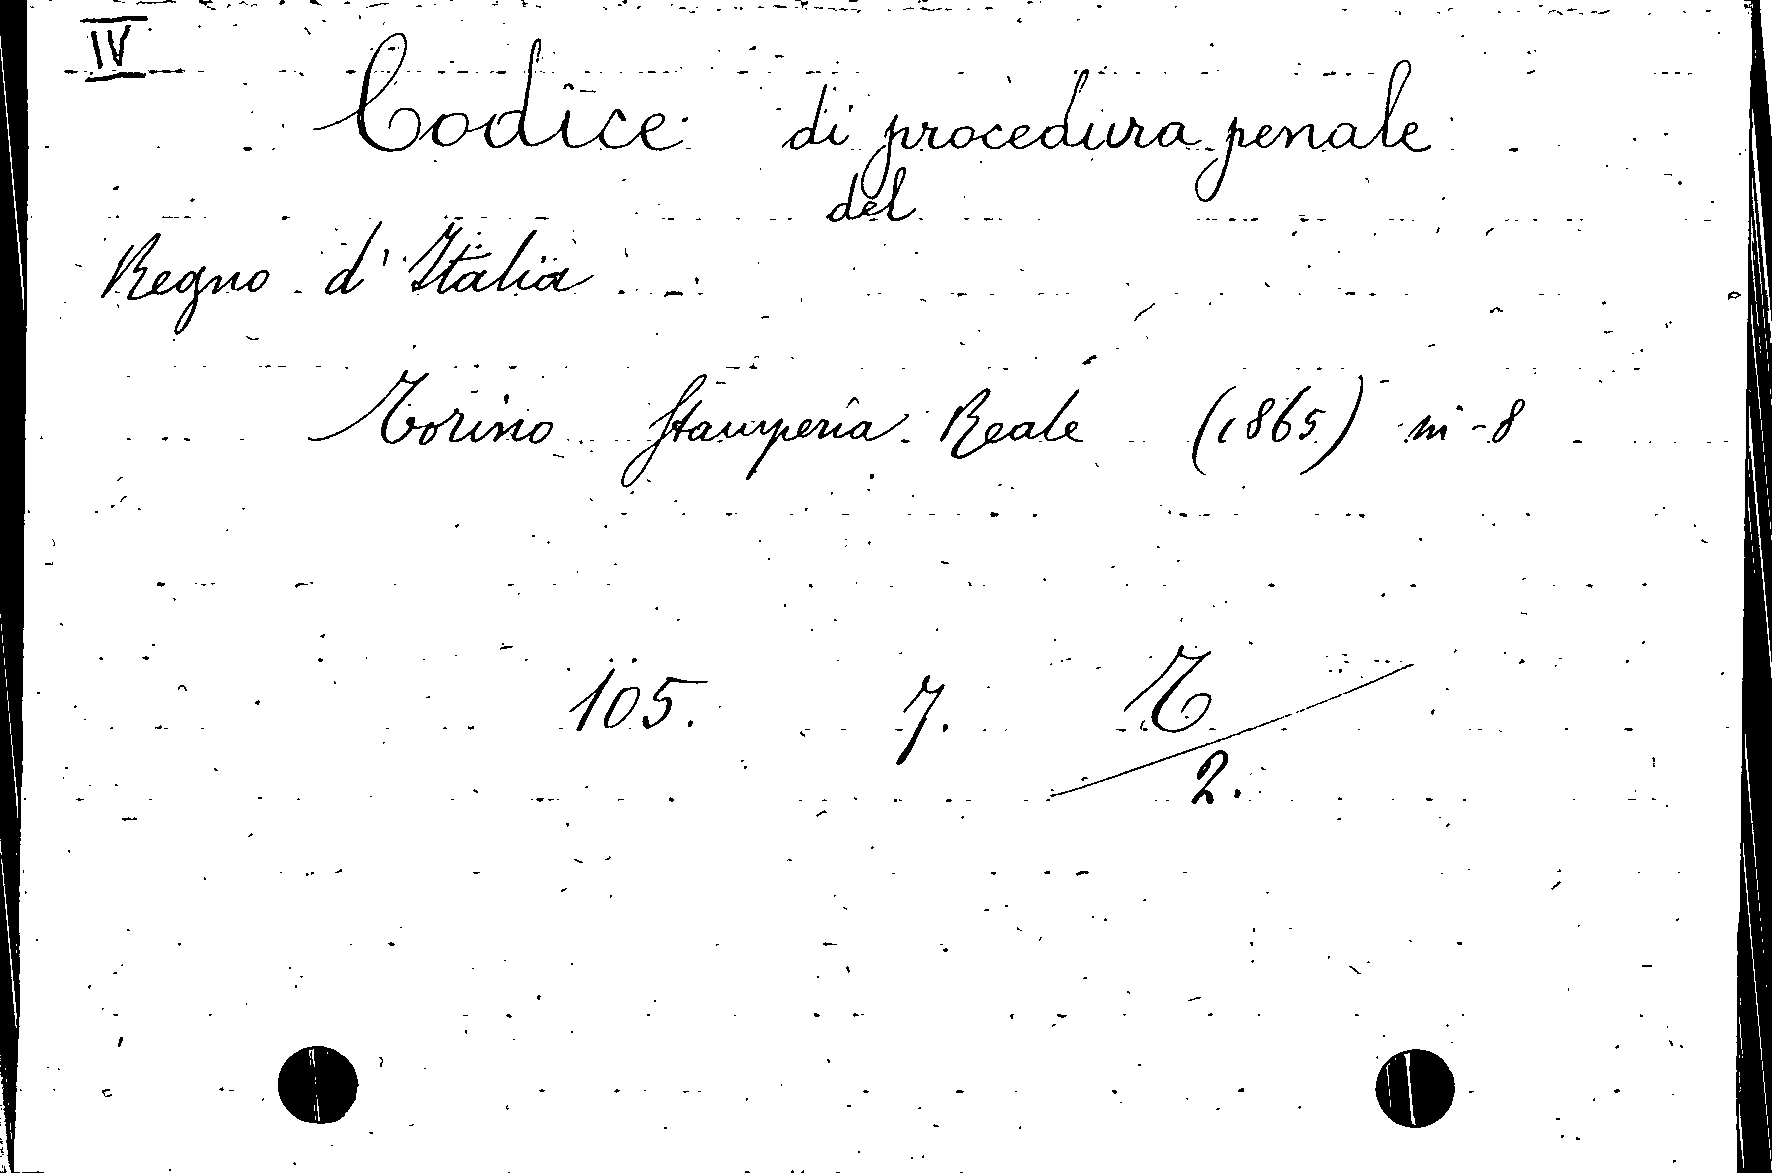 IV
Codice di procedura penale
del
Regno d'Italia
Torino Stamperia Reale (1865) in-8
105. 7. T/2.